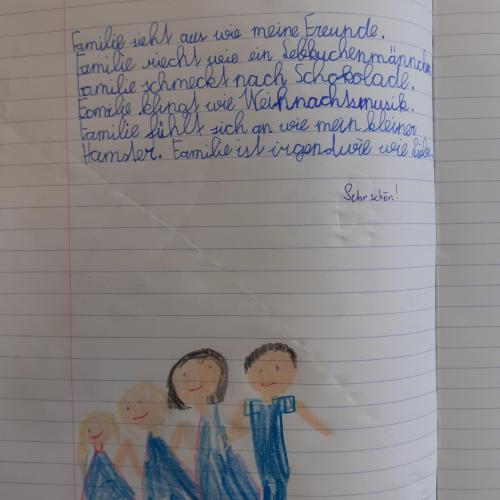 Familie sieht aus wie meine Freunde.
Familie riecht wie ein Lebkuchenmännchen
Familie schmeckt nach Schokolade.
Familie klingt wie Weihnachtsmusik.
Familie fühlt sich an wie mein kleiner
Hamster. Familie ist irgendwie wie Liebe.
Sehr schön!